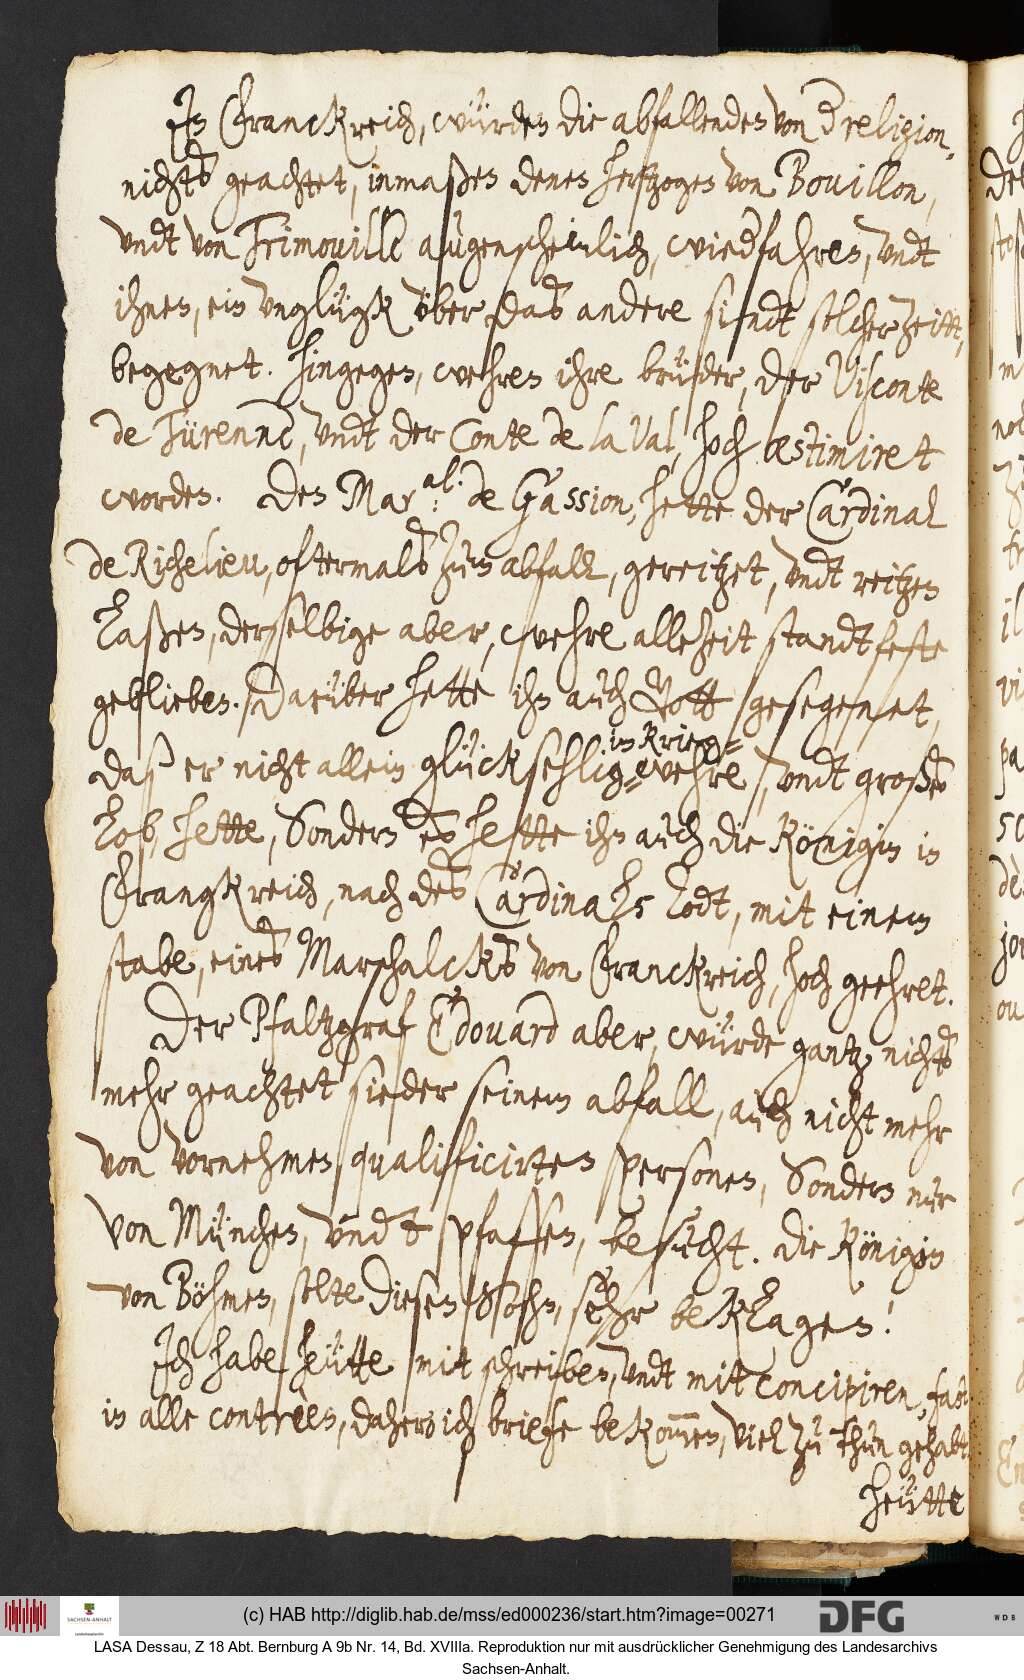 In Franckreich, würden die abfallenden von der religion,
nichts geachtet, inmaßen denen Hertzogen von Bouillon,
undt von Trimouille augenscheinlich, wiedfahren, undt
ihnen, ein unglügk über das andere sindt solcher zeitt,
begegnet. Hingegen, wehren ihre brüder, der Visconte
de Türenne, undt der Conte de la Val, hoch æstimiret
worden. Den Mar:al: de Gassion, hette der Cardinal
de Richelieu, oftermals zum abfall, gereitzet, undt reitzen
laßen, derselbige aber, wehre allezeit standtfeste
geblieben. Darüber hette ihn auch Gott gesegenet,
im Krieg=
daß er nicht allein glücksehlig= wehre, undt großes
Lob, hette, Sondern es hette ihn auch die Königin in
Frangkreich, nach des Cardinals Todt, mit einem
stabe, eines Marschalcks von Franckreich, hoch geehret.
Der Pfaltzgraf Edouard aber, würde gantz nichts
mehr geachtet sieder seinem abfall, auch nicht mehr
von vornehmen, qualificirten personen, Sondern nur
von München, undt pfaffen, besucht. Die Königin
von Böhmen, solte diesen Sohn, sehr beklagen!
Ich habe heütte mit schreiben, undt mit concipiren, fast
in alle contrèen, daher ich briefe bekommen, viel zu thun gehabt.
Heütte
(c) HAB http://diglib.hab.de/mss/ed000236/start.htm?image=00271
SACHSEN-ANHALT
DFG
WDB
LASA Dessau, Z 18 Abt. Bernburg A 9b Nr. 14, Bd. XVIIIa. Reproduktion nur mit ausdrücklicher Genehmigung des Landesarchivs
Sachsen-Anhalt.